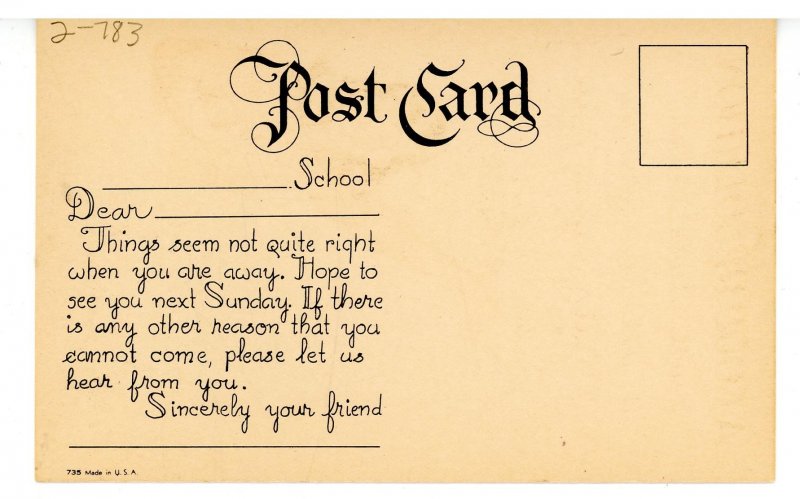 2-783
Post Card
School
Dear
Things seem not quite right
when you are away. Hope to
see you next Sunday. If there
is any other reason that you
cannot come, please let us
hear from you.
Sincerely your friend
735 Made in U.S.A.